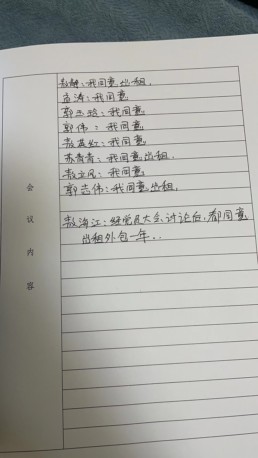 敖静:我同意出租.
孟涛:我同意
郭玉琼:我同意
郭伟:我同意
敖英红:我同意
苏青青:我同意出租.
敖立凤:我同意
郭志伟:我同意出租.
敖海江:经党员大会讨论后,都同意
出租外包一年..
会议内容